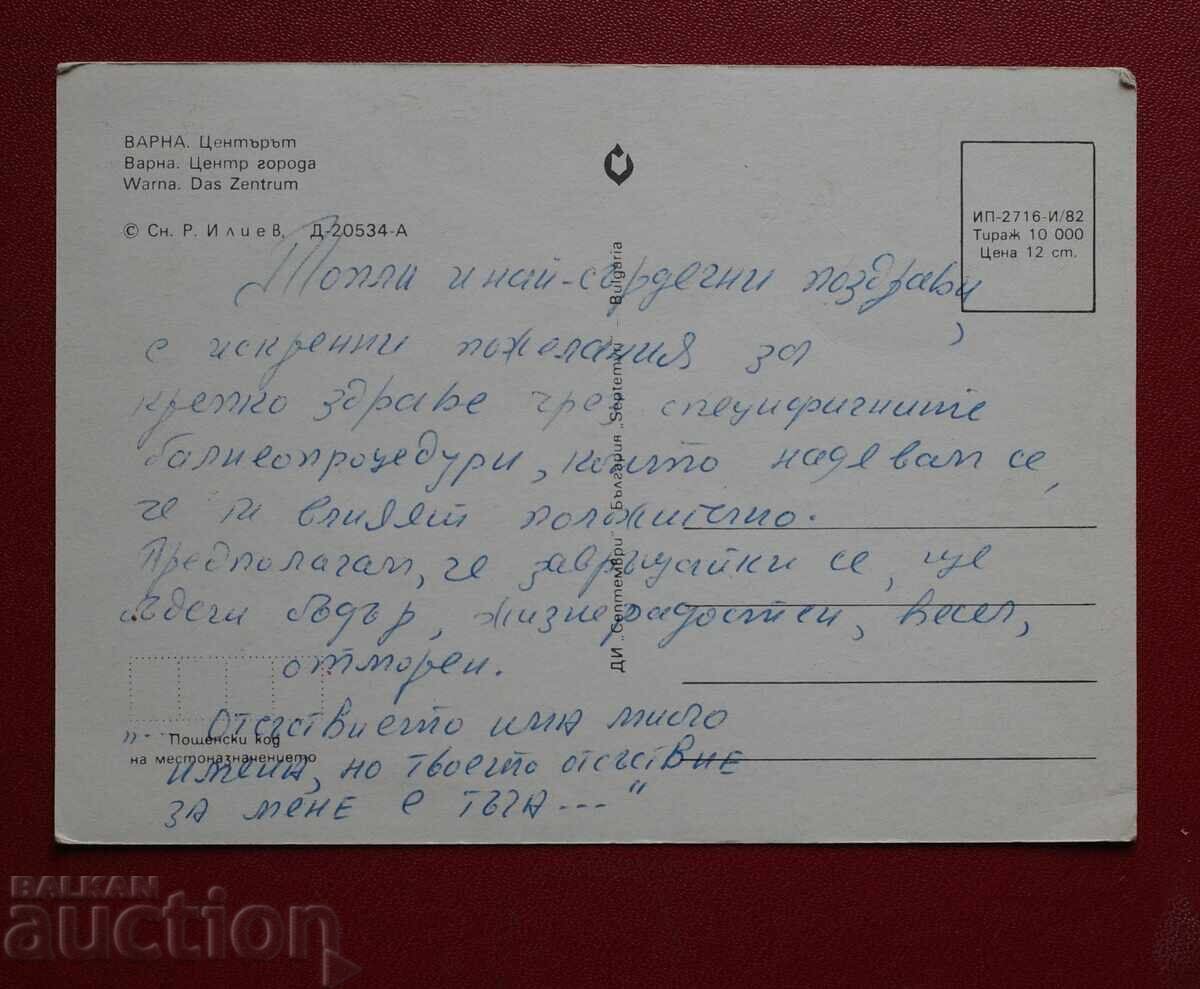 ВАРНА. Центърът
Варна. Центр города
Warna. Das Zentrum
© Сн. Р. Илиев, Д-20534-А
ИП-2716-И/82
Тираж 10 000
Цена 12 ст.
ДИ „Септември" България „Septemvri" – Bulgaria
Топли и най-сърдечни поздрави,
с искренни пожелания за
крепко здраве чрез специфичните
балнеопроцедури, които надявам се,
че ти влияят положително.
Предполагам, че завръщайки се, ще
бъдеш бодър, жизнерадостен, весел,
отморен.
„... Отсъствието има много
имена, но твоето отсъствие
за мене е тъга ..."
Пощенски код
на местоназначението
BALKAN
auction